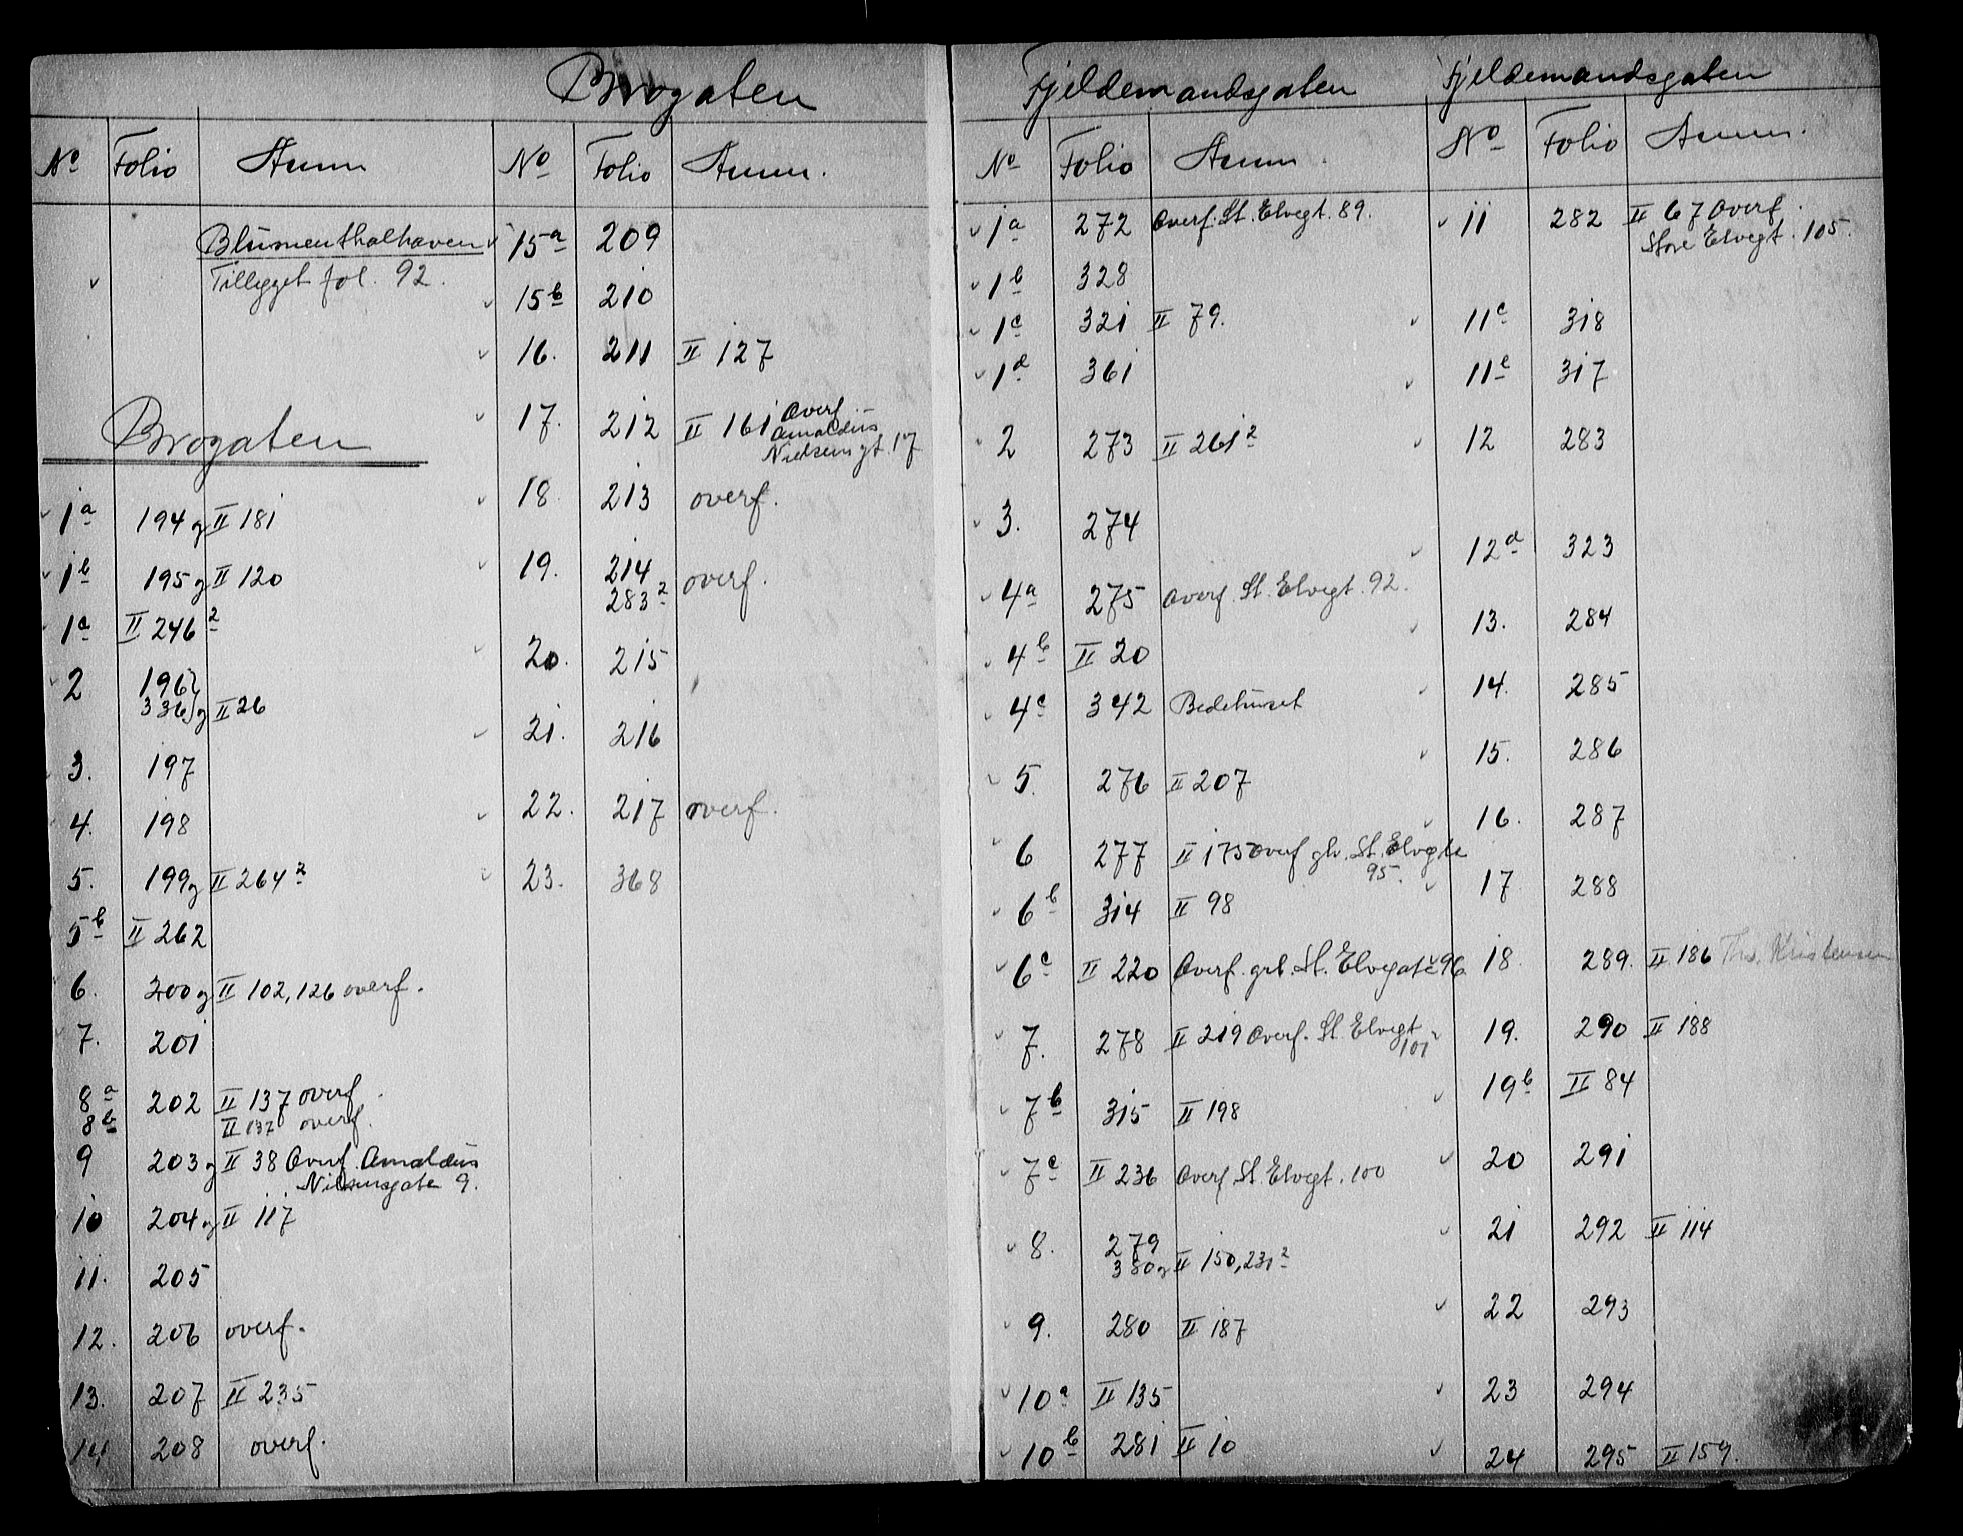 Brogaten
No Folio Anm
Blumenthalhaven
Tillegget fol. 92.
Brogaten
1a 194 og II 181
1b 195 og II 120
1c II 246 2
2 196
336 og II 26
3. 197
4. 198
5. 199 og II 264 2
5b II 262
6. 200 og II 102, 126 overf.
7. 201
8a 202 II 137 overf.
8b II 137 overf.
9 203 og II 38 Overf. Arnoldus
Nilsensgate 9.
10 204 og II 117
11. 205
12. 206 overf.
13. 207 II 235
14. 208 overf.
No Folio Anm.
15a 209
15b 210
16. 211 II 127
17. 212 II 161 Overf
Arnoldus
Nielsensgt. 17
18 213 overf.
19. 214 overf.
283 2
20. 215
21. 216
22. 217 overf.
23. 368
Fjeldemandsgaten
No Folio Anm.
1a 272 Overf. St. Elvegt. 89.
1b 328
1c 321 II 79.
1d 361
2 273 II 261 2
3. 274
4a 275 Overf. St. Elvegt. 92.
4b II 20
4c 342 Bedehuset
5. 276 II 207
6 277 II 175 Overf glv. St. Elvegte
95.
6b 314 II 98
6c II 220 Overf. St. Elvegate 96
7. 278 II 219 Overf. St Elvegt
101
7b 315 II 198
7c II 236 Overf St. Elvegt. 100
8. 279
380 og II 150, 231 2
9. 280 II 187
10a II 135
10b 281 II 10
Fjeldemandsgaten
No Folio Anm.
11 282 II 67 Overf.
Store Elvegt. 105.
11c 318
11e 317
12 283
12d 323
13. 284
14. 285
15. 286
16. 287
17 288
18. 289. II 186 Ths. Kristensen
19. 290 II 188
19b II 84
20 291
21 292 II 114
22 293
23 294
24 295 II 159.